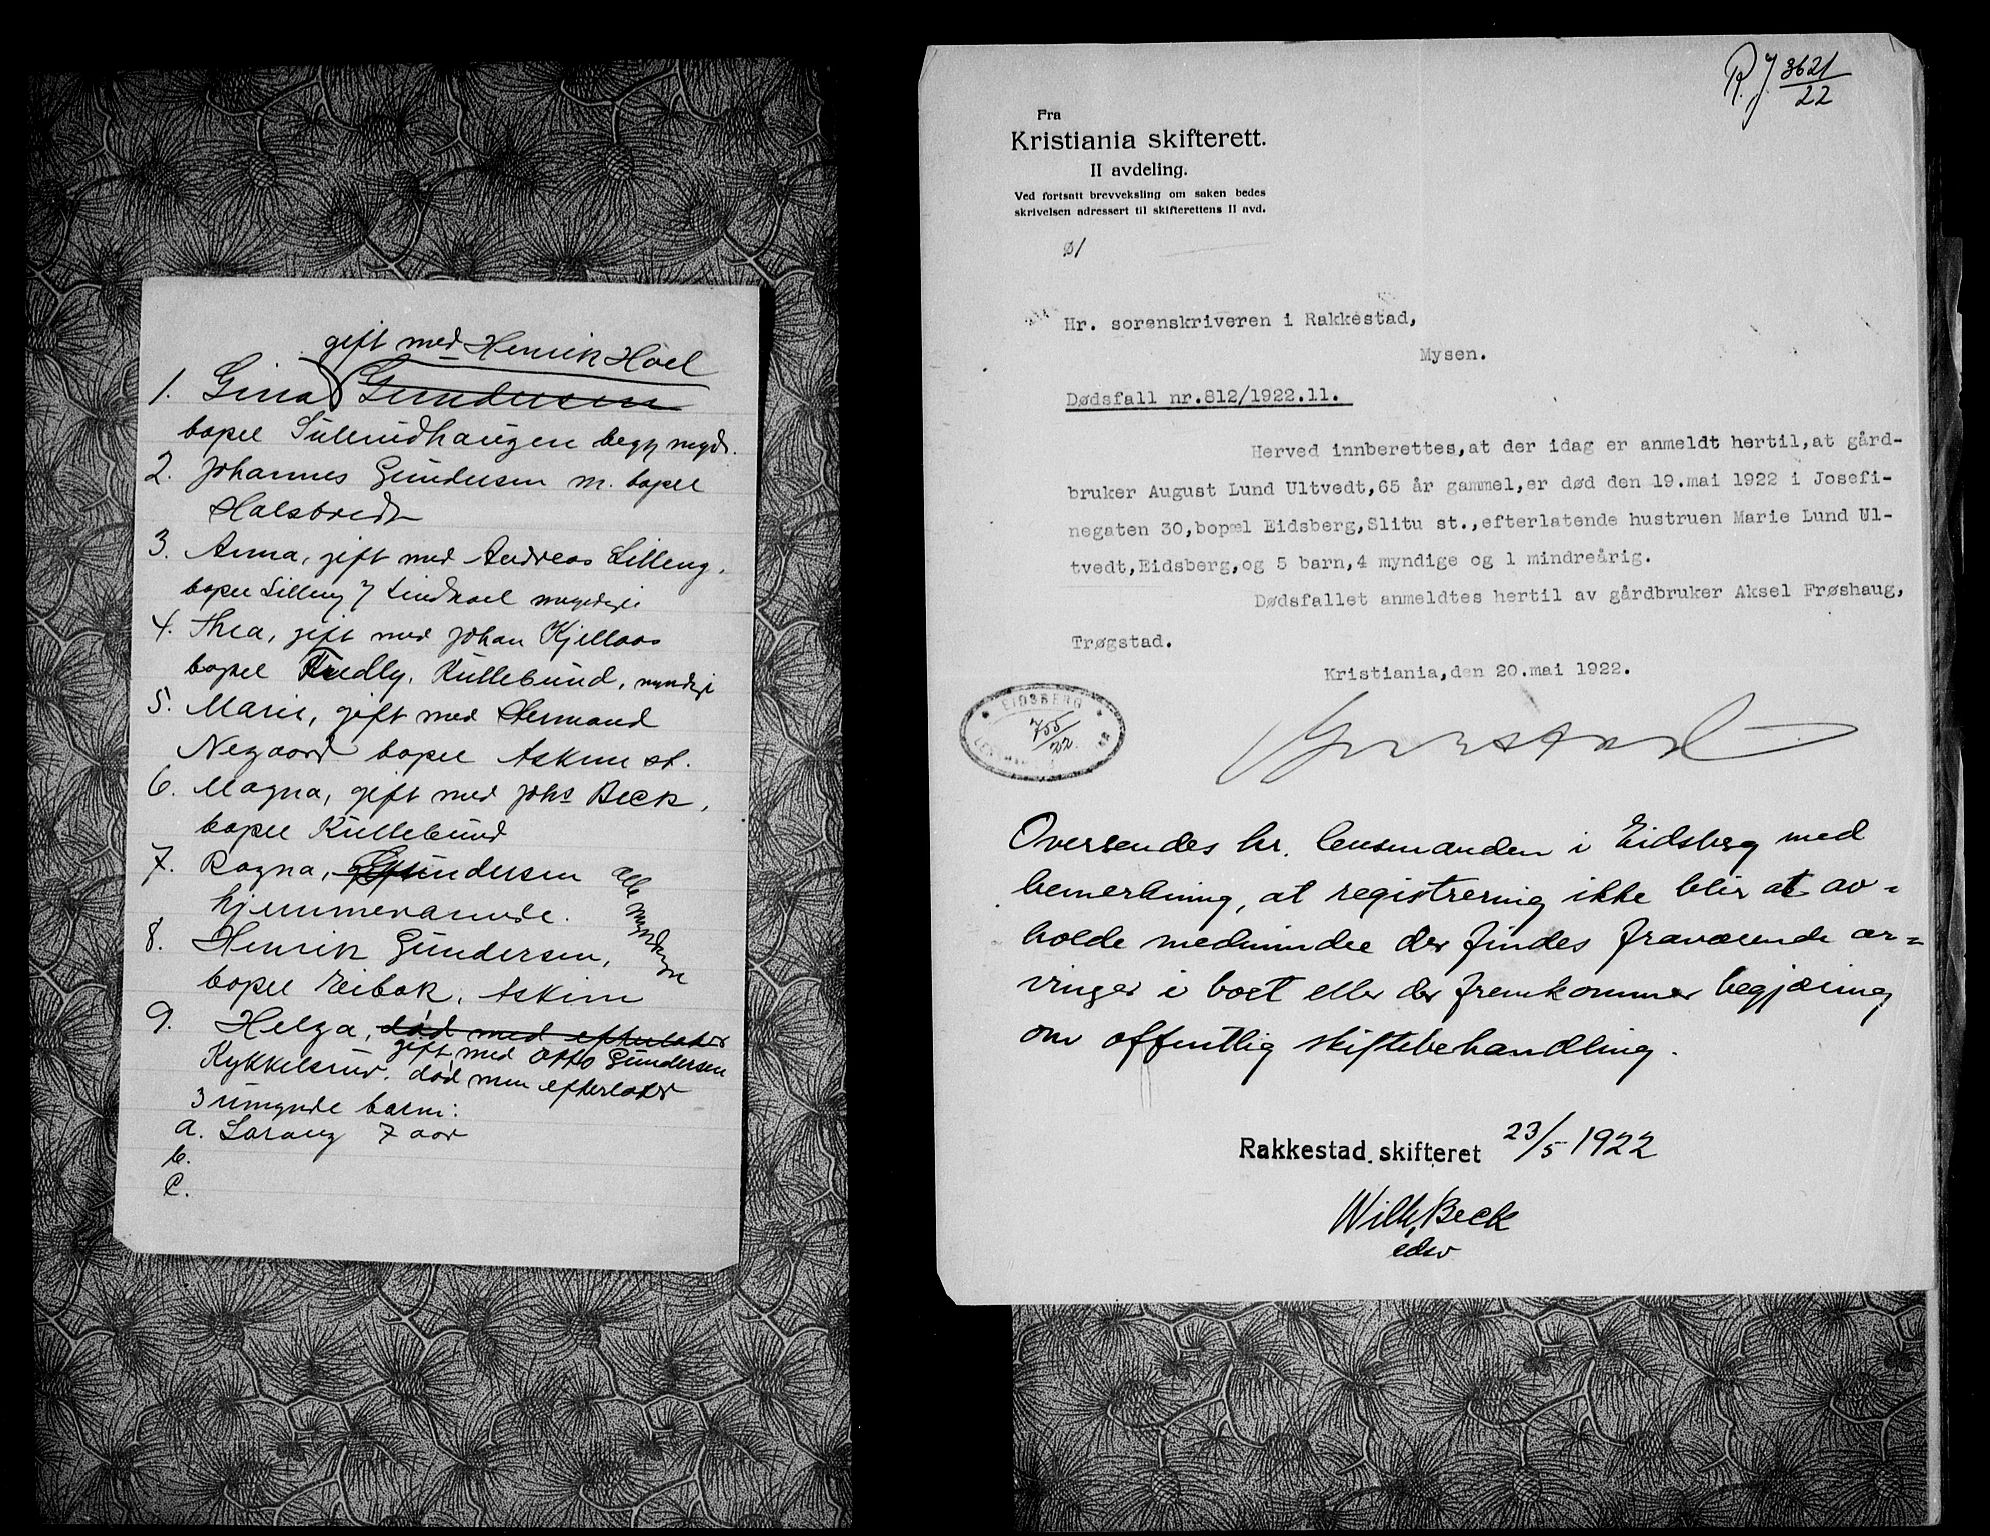 gift med Henrik Hoel
1. Gina Gundersen
bopel begge mynd.
2. Johannes Gundersen m. bopel
Halsbredt
3. Anna, gift med Andreas Lilleng.
bopel Lilleng
4. Thea, gift med Johan Kjellaas
bopel Kullebund, myndige
5. Marie, gift med Hermand
Negaard bopel Askim st.
6. Magna, gift med Johs Beck,
bopel Kullebund
7. Ragna, Gundersen
hjemmeværende.
alle myndige
8. Henrik Gundersen,
bopel Eibak, Askim
9. Helga, død med efterlater
gift med Otto Gundersen
Kykkelsrud. død men efterlater
3 umynde barn:
a. Laraug 7 aar
b.
c.
R. J. 3621/22
Fra
Kristiania skifterett.
II avdeling.
Ved fortsatt brevveksling om saken bedes
skrivelsen adressert til skifterettens II avd.
Ø1
Hr. sorenskriveren i Rakkestad,
Mysen.
Dødsfall nr.812/1922.11.
Herved innberettes,at der idag er anmeldt hertil,at gård-
bruker August Lund Ultvedt,65 år gammel,er død den 19.mai 1922 i Josefi-
negaten 30,bopæl Eidsberg,Slitu st.,efterlatende hustruen Marie Lund Ul-
tvedt,Eidsberg,og 5 barn,4 myndige og 1 mindreårig.
Dødsfallet anmeldtes hertil av gårdbruker Aksel Frøshaug,
Trøgstad.
Kristiania,den 20.mai 1922.
EIDSBERG
755/22.
Oversendes hr. lensmanden i Eidsberg med
bemerkning, at registrering ikke blir at av=
holde medmindre der findes fraværende ar=
vinger i boet eller der fremkommer begjæring
om offentlig skiftebehandling.
Rakkestad skifteret 23/5 1922
Wilh. Beck
edsv